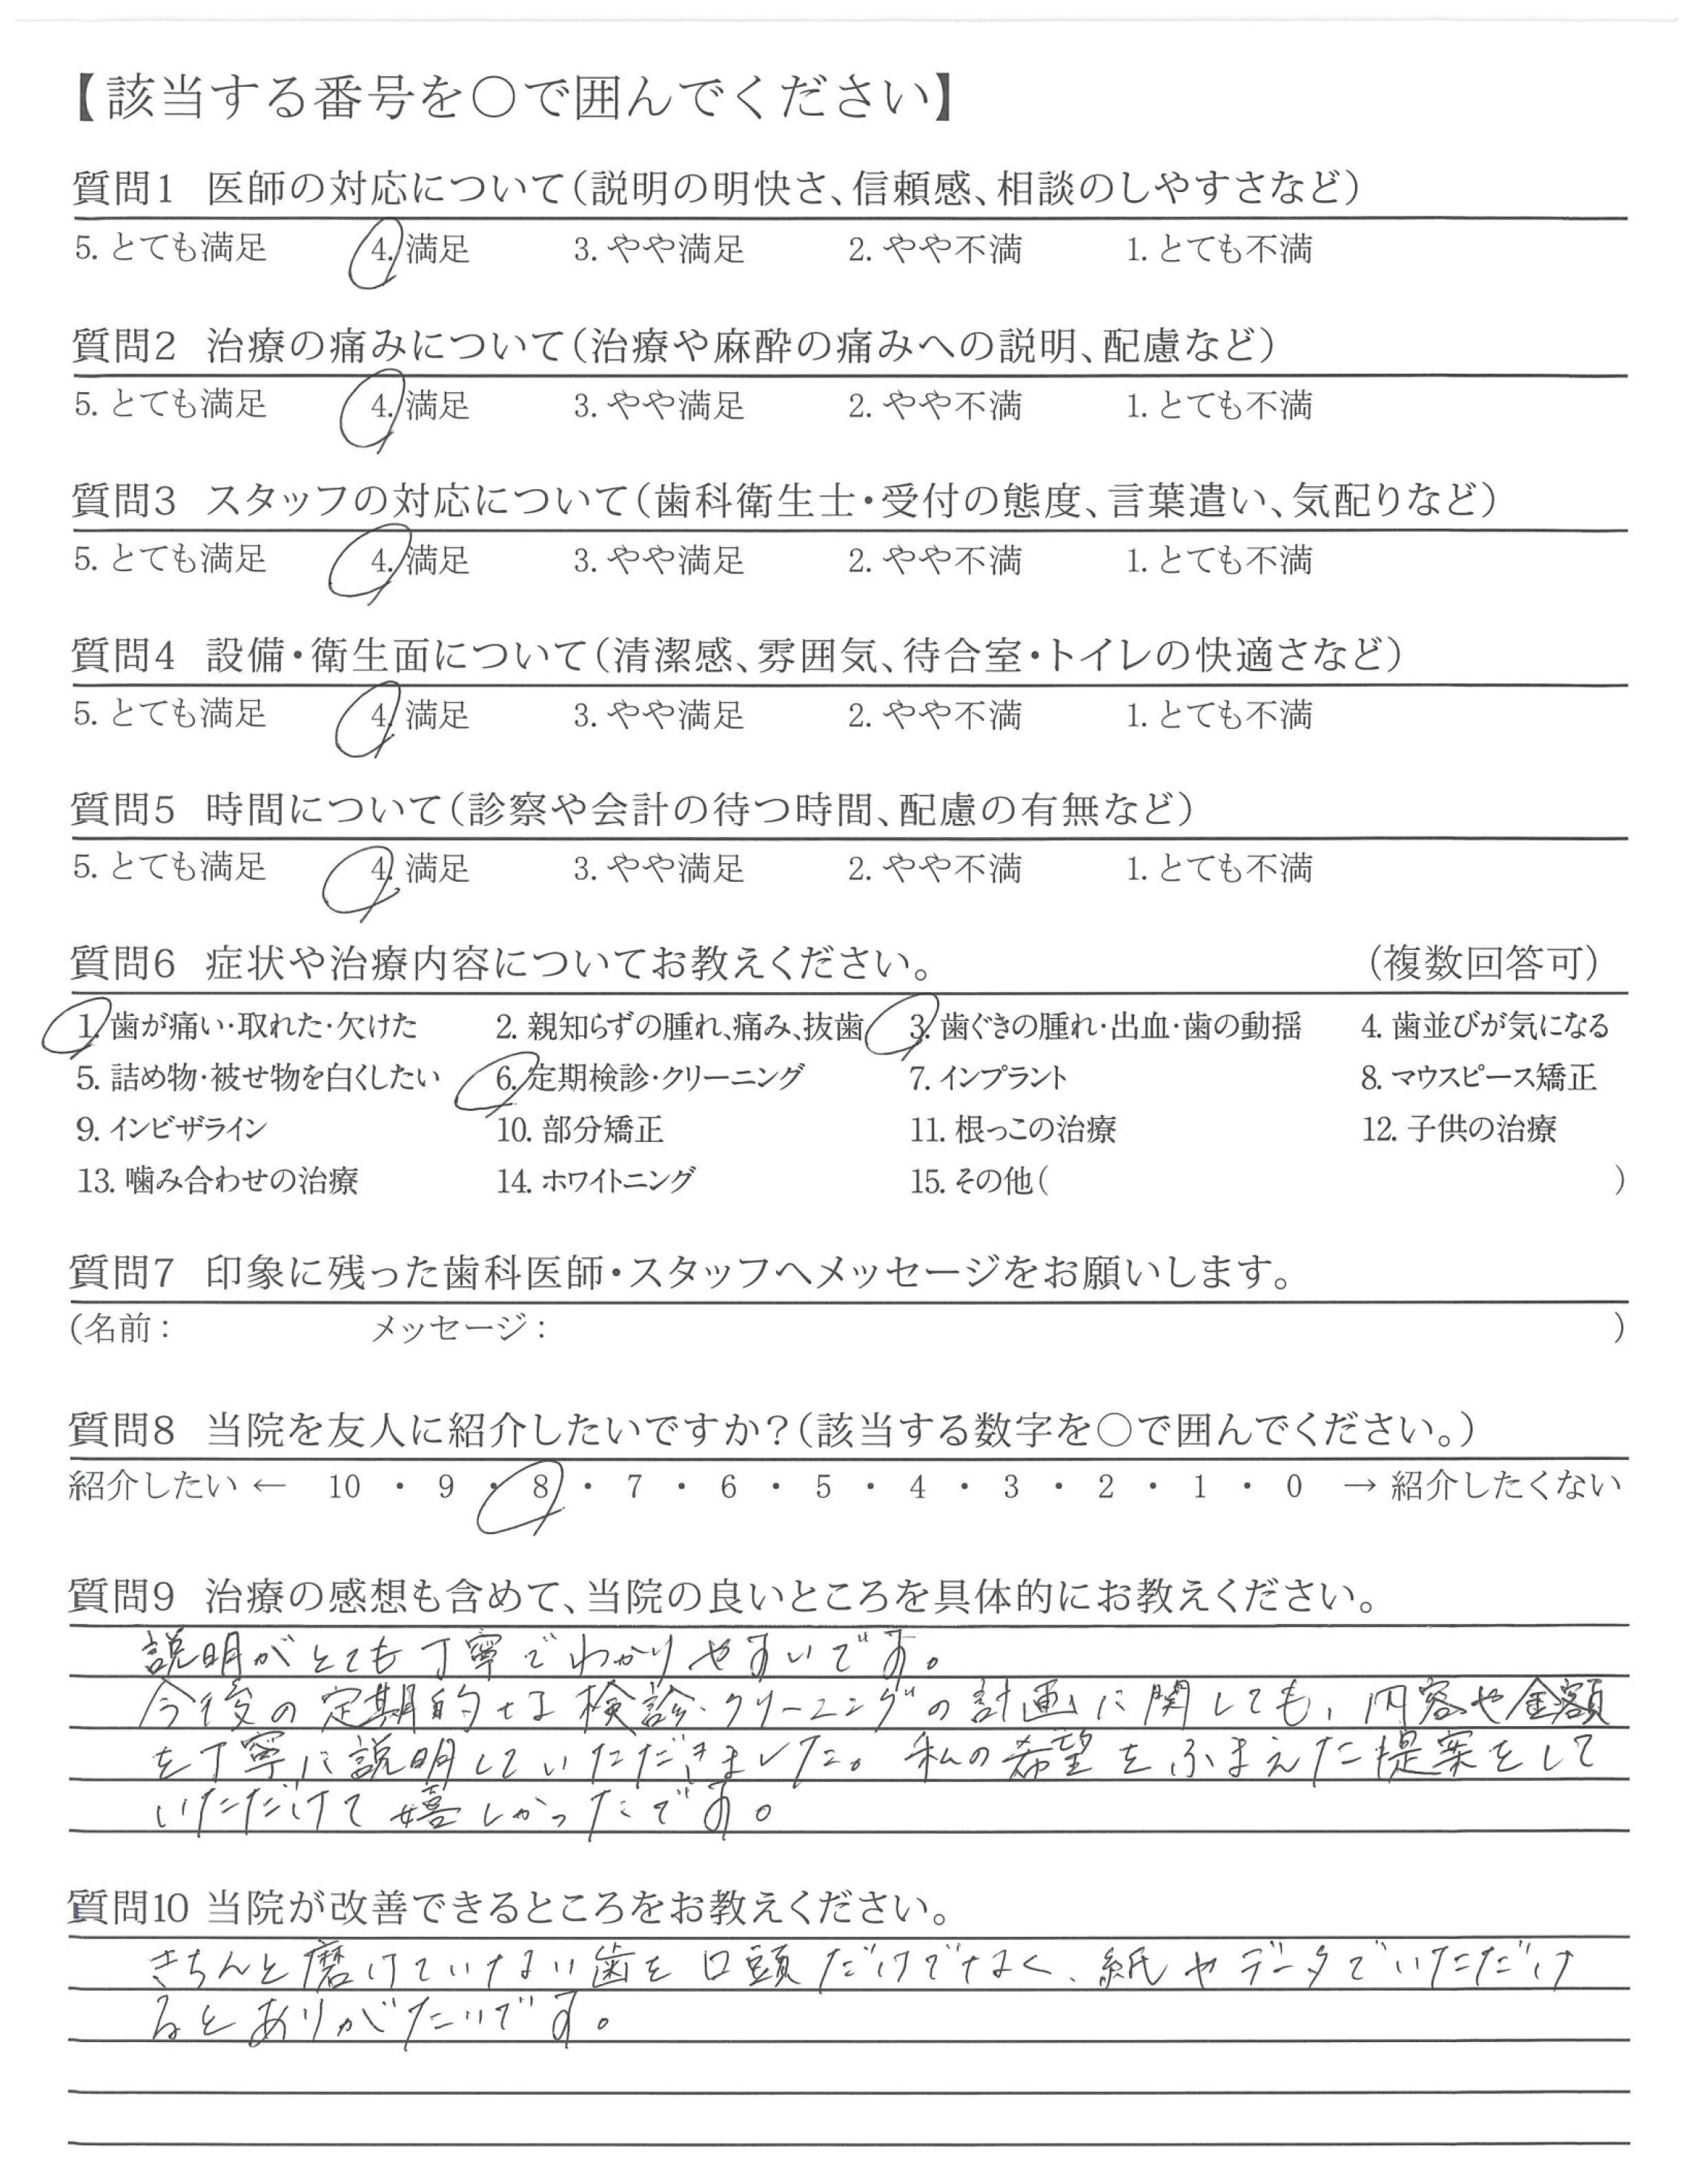 【該当する番号を○で囲んでください】
質問1 医師の対応について(説明の明快さ、信頼感、相談のしやすさなど)
5. とても満足 4. 満足 3. やや満足 2. やや不満 1. とても不満
質問2 治療の痛みについて(治療や麻酔の痛みへの説明、配慮など)
5. とても満足 4. 満足 3. やや満足 2. やや不満 1. とても不満
質問3 スタッフの対応について(歯科衛生士・受付の態度、言葉遣い、気配りなど)
5. とても満足 4. 満足 3. やや満足 2. やや不満 1. とても不満
質問4 設備・衛生面について(清潔感、雰囲気、待合室・トイレの快適さなど)
5. とても満足 4. 満足 3. やや満足 2. やや不満 1. とても不満
質問5 時間について(診察や会計の待つ時間、配慮の有無など)
5. とても満足 4. 満足 3. やや満足 2. やや不満 1. とても不満
質問6 症状や治療内容についてお教えください。 (複数回答可)
1. 歯が痛い・取れた・欠けた 2. 親知らずの腫れ、痛み、抜歯 3. 歯ぐきの腫れ・出血・歯の動揺 4. 歯並びが気になる
5. 詰め物・被せ物を白くしたい 6. 定期検診・クリーニング 7. インプラント 8. マウスピース矯正
9. インビザライン 10. 部分矯正 11. 根っこの治療 12. 子供の治療
13. 噛み合わせの治療 14. ホワイトニング 15. その他( )
質問7 印象に残った歯科医師・スタッフへメッセージをお願いします。
(名前: メッセージ: )
質問8 当院を友人に紹介したいですか?(該当する数字を○で囲んでください。)
紹介したい ← 10 ・ 9 ・ 8 ・ 7 ・ 6 ・ 5 ・ 4 ・ 3 ・ 2 ・ 1 ・ 0 → 紹介したくない
質問9 治療の感想も含めて、当院の良いところを具体的にお教えください。
説明がとても丁寧でわかりやすいです。
今後の定期的な検診・クリーニングの計画に関しても、内容や金額
を丁寧に説明していただきました。私の希望をふまえた提案をして
いただけて嬉しかったです。
質問10 当院が改善できるところをお教えください。
きちんと磨けていない歯を口頭だけでなく、紙やデータでいただけ
るとありがたいです。